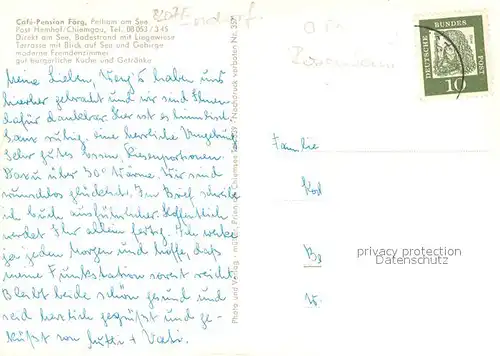 Café-Pension Förg, Pelham am See
Post Hemhof/Chiemgau, Tel. 08053/345
Direkt am See, Badestrand mit Liegewiese
Terrasse mit Blick auf See und Gebirge
moderne Fremdenzimmer
gut bürgerliche Küche und Getränke
Meine Lieben, haben uns
hierher gebracht und wir sind Ihnen
dafür dankbar. Hier ist es himmlisch.
Ganz ruhig, eine herrliche Umgebung
Sehr gutes Essen, Riesenportionen.
Dazu über 30° Wärme. Wir sind
wunschlos glücklich. Im Brief schreibe
ich Euch ausführlicher. Hoffentlich
werdet Ihr allein fertig. Ich
ja jeden Morgen und hoffe, daß
meine Funkstation soweit reicht.
Bleibt beide schön gesund und
seid herzlich gegrüßt und ge-
küßt von Mutti + Vati.
Photo und Verlag: Prien am Chiemsee Nachdruck verboten Nr.
DEUTSCHE BUNDESPOST
10
Familie
privacy protection
Datenschutz